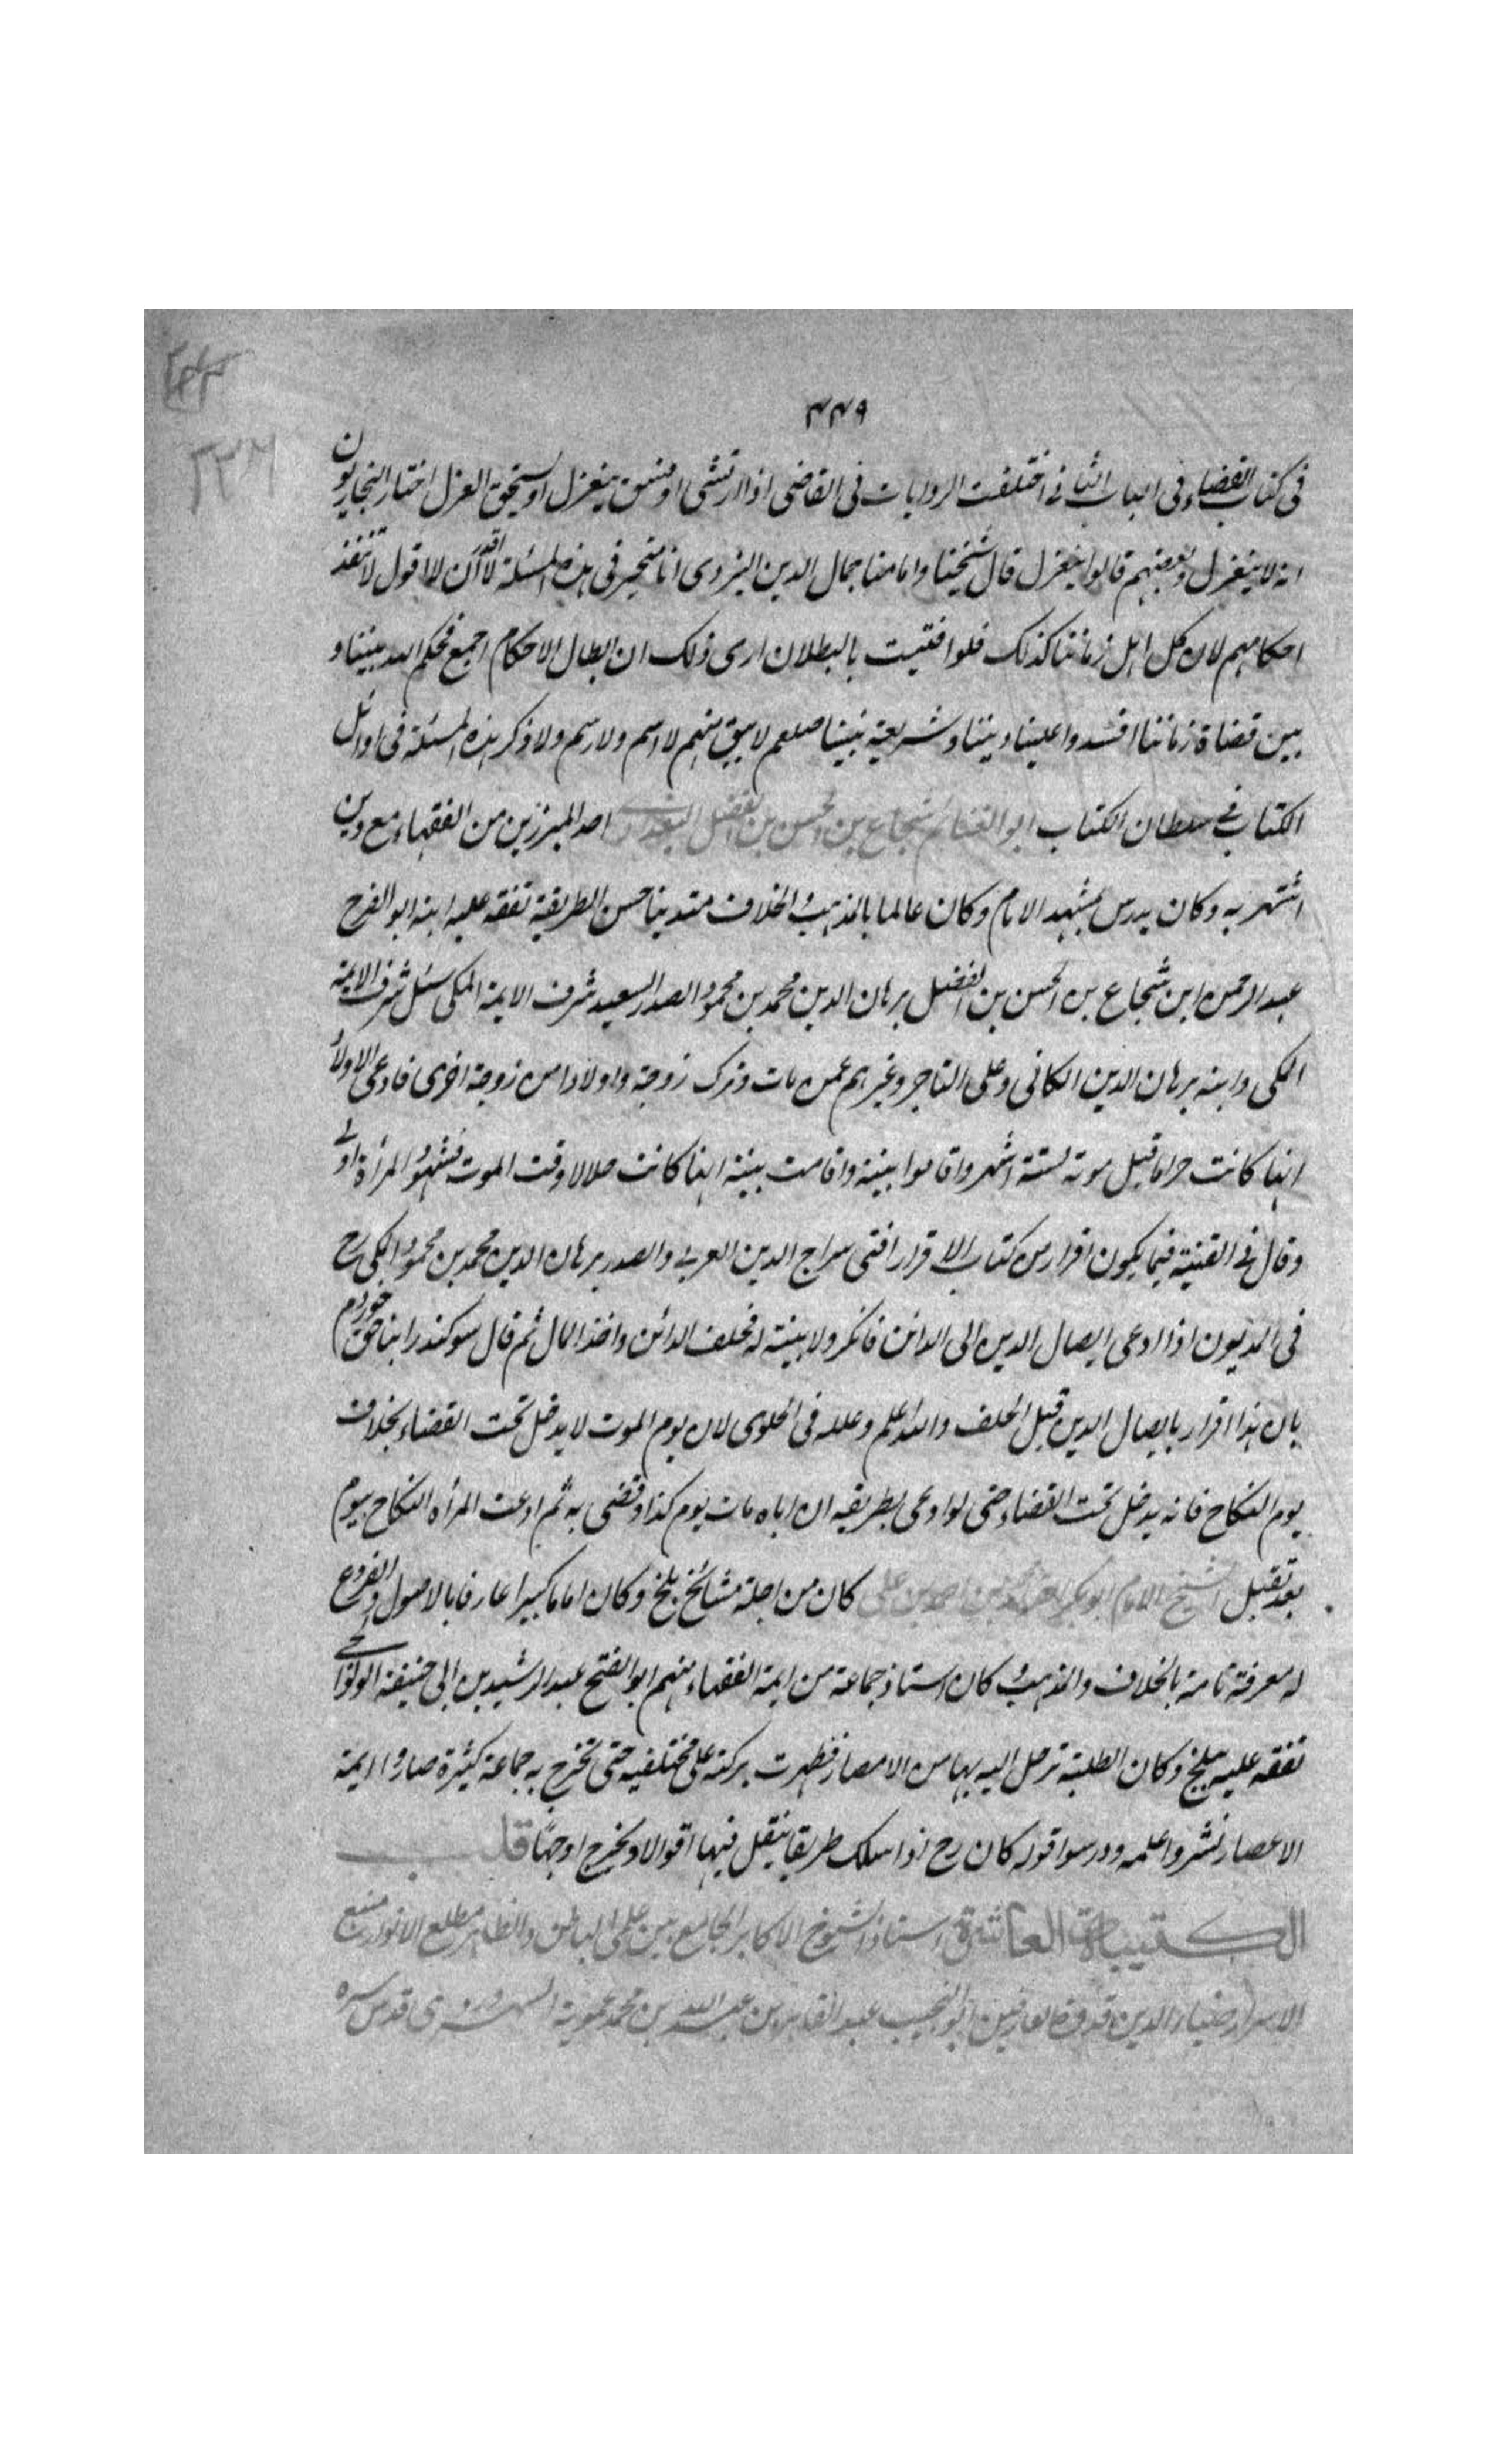 ٤٤٩
فى كتاب القضاء فى الباب الثانى اختلفت الروايات فى القاضى اذا ارتشى او فسق ينعزل او يستحق العزل اختار البخاريون
انه لا ينعزل وبعضهم قالوا ينعزل قال شيخنا وامامنا جمال الدين البزدوى انا متحير فى هذه المسئلة لا اقدر ان لا اقول لا تنفذ
احكامهم لان كل اهل زماننا كذلك فلو افتيت بالبطلان ارى ذلك ان ابطال الاحكام اجمع فحكم الله بيننا و
بين قضاة زماننا افسدوا علينا ديننا وشريعة نبينا صلعم لا يبق منهم لا اسم ولا رسم ولا ذكر هذه المسئلة فى اوائل
الكتاب فى سلطان الكتاب ابو الغنائم شجاع بن الحسن بن الفضل البغدادى احد المبرزين من الفقهاء مع دين
اشتهر به وكان يدرس بمشهد الامام وكان عالما بالمذهب والخلاف متدينا حسن الطريقة تفقه عليه ابنه ابو الفرج
عبد الرحمن ابن شجاع بن الحسن بن الفضل برهان الدين محمد بن محمود الصدر السعيد شرف الايمة المكى سئل شرف الايمة
المكى وابنه برهان الدين الكانى وعلى التاجر وغيرهم عمن مات وترك زوجة واولادا من زوجة اخرى فادعى الاولاد
انها كانت حراما قبل موته لستة اشهر واقاموا بينة واقامت بينة انها كانت حلالا وقت الموت فشهود المرأة اولى
وقال فى القنية فيما يكون اقرار من كتاب الاقرار افتى سراج الدين العربى والصدر برهان الدين محمد بن محمود المكى رح
فى المديون اذا ادعى ايصال الدين الى الدائن فانكر ولا بينة له فحلف الدائن واخذ المال ثم قال سوكند را بناحق خوردم
بان هذا اقرار بايصال الدين قبل الحلف والله اعلم وعلله فى الحلوى لان يوم الموت لا يدخل تحت القضاء بخلاف
يوم النكاح فانه يدخل تحت القضاء حتى لو ادعى بطريقه ان اباه مات يوم كذا وقضى به ثم ادعت المرأة النكاح بيوم
بعد تقبل الشيخ الامام ابو بكر محمد بن احمد بن على كان من اجلة مشائخ بلخ وكان اماما كبيرا عارفا بالاصول والفروع
له معرفة تامة بالخلاف والمذهب وكان استاذ جماعة من ايمة الفقهاء منهم ابو الفتح عبد الرشيد بن ابى حنيفة الولوالجى
تفقه عليه ببلخ وكان الطلبة ترحل اليه بها من الامصار فظهرت بركته على مختلفيه حتى تخرج به جماعة كثيرة صاروا ايمة
الاعصار نشروا علمه ودرسوا قوله كان رح اذا سلك طريقا ينقل فيها اقوالا ويخرج اوجها قلب
الكتيبة العاشرة استاذ الشيوخ الاكابر الجامع بين علمى الباطن والظاهر مطلع الانوار منبع
الاسرار ضياء الدين قدوة العارفين ابو النجيب عبد القاهر بن عبد الله بن محمد عمويه السهروردى قدس سره